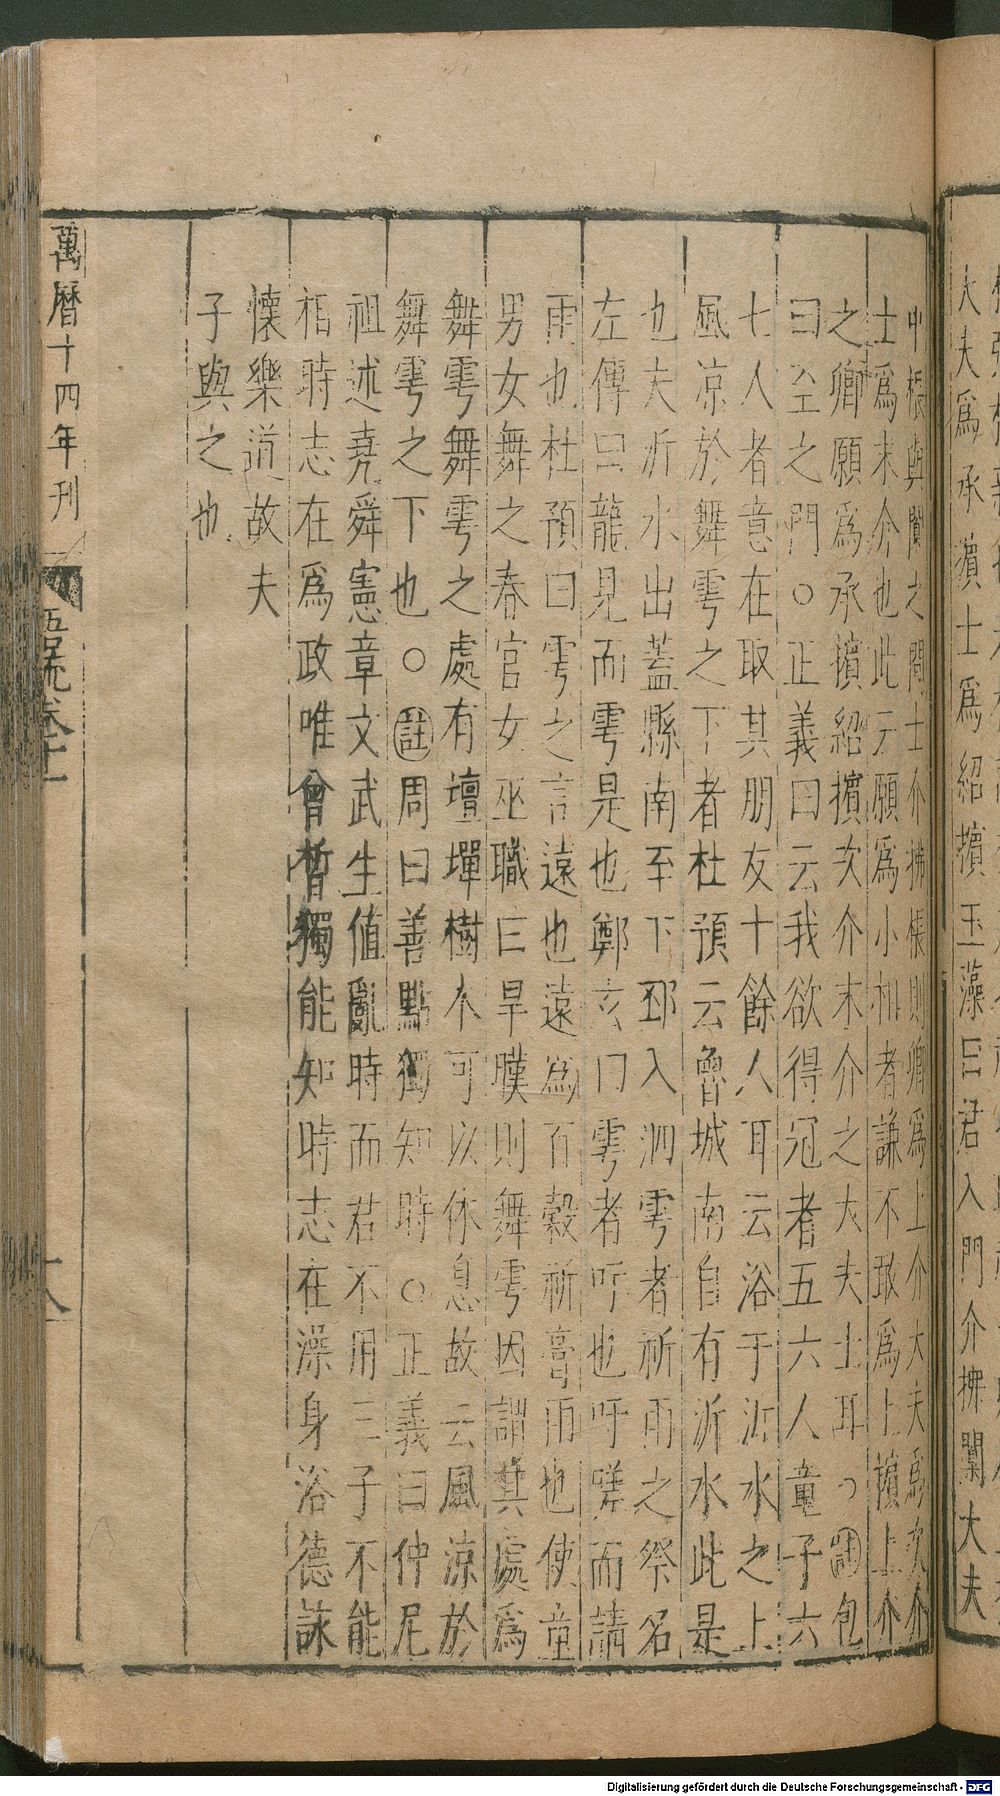 大夫爲承擯士爲紹擯玉藻曰君入門介拂闑大夫
中棖與闑之閒士介拂棖則卿爲上介大夫爲次介
士爲末介也此云願爲小相者謙不敢爲上擯上介
之卿願爲承擯紹擯次介末介之大夫士耳○註包
曰至之門○正義曰云我欲得冠者五六人童子六
七人者意在取其朋友十餘人耳云浴于沂水之上
風凉於舞雩之下者杜預云魯城南自有沂水此是
也夫沂水出蓋縣南至下邳入泗雩者祈雨之祭名
左傳曰龍見而雩是也鄭玄曰雩者吁也吁嗟而請
雨也杜預曰雩之言遠也遠爲百穀祈膏雨也使童
男女舞之春官女巫職曰旱暵則舞雩因謂其處爲
舞雩舞雩之處有壇墠樹木可以休息故云風凉於
舞雩之下也○註周曰善點獨知時○正義曰仲尼
祖述堯舜憲章文武生值亂時而君不用三子不能
相時志在爲政唯曾晳獨能知時志在澡身浴德詠
懷樂道故夫
子與之也
萬曆十四年刊 語疏卷十一 十八
Digitalisierung gefördert durch die Deutsche Forschungsgemeinschaft - DFG